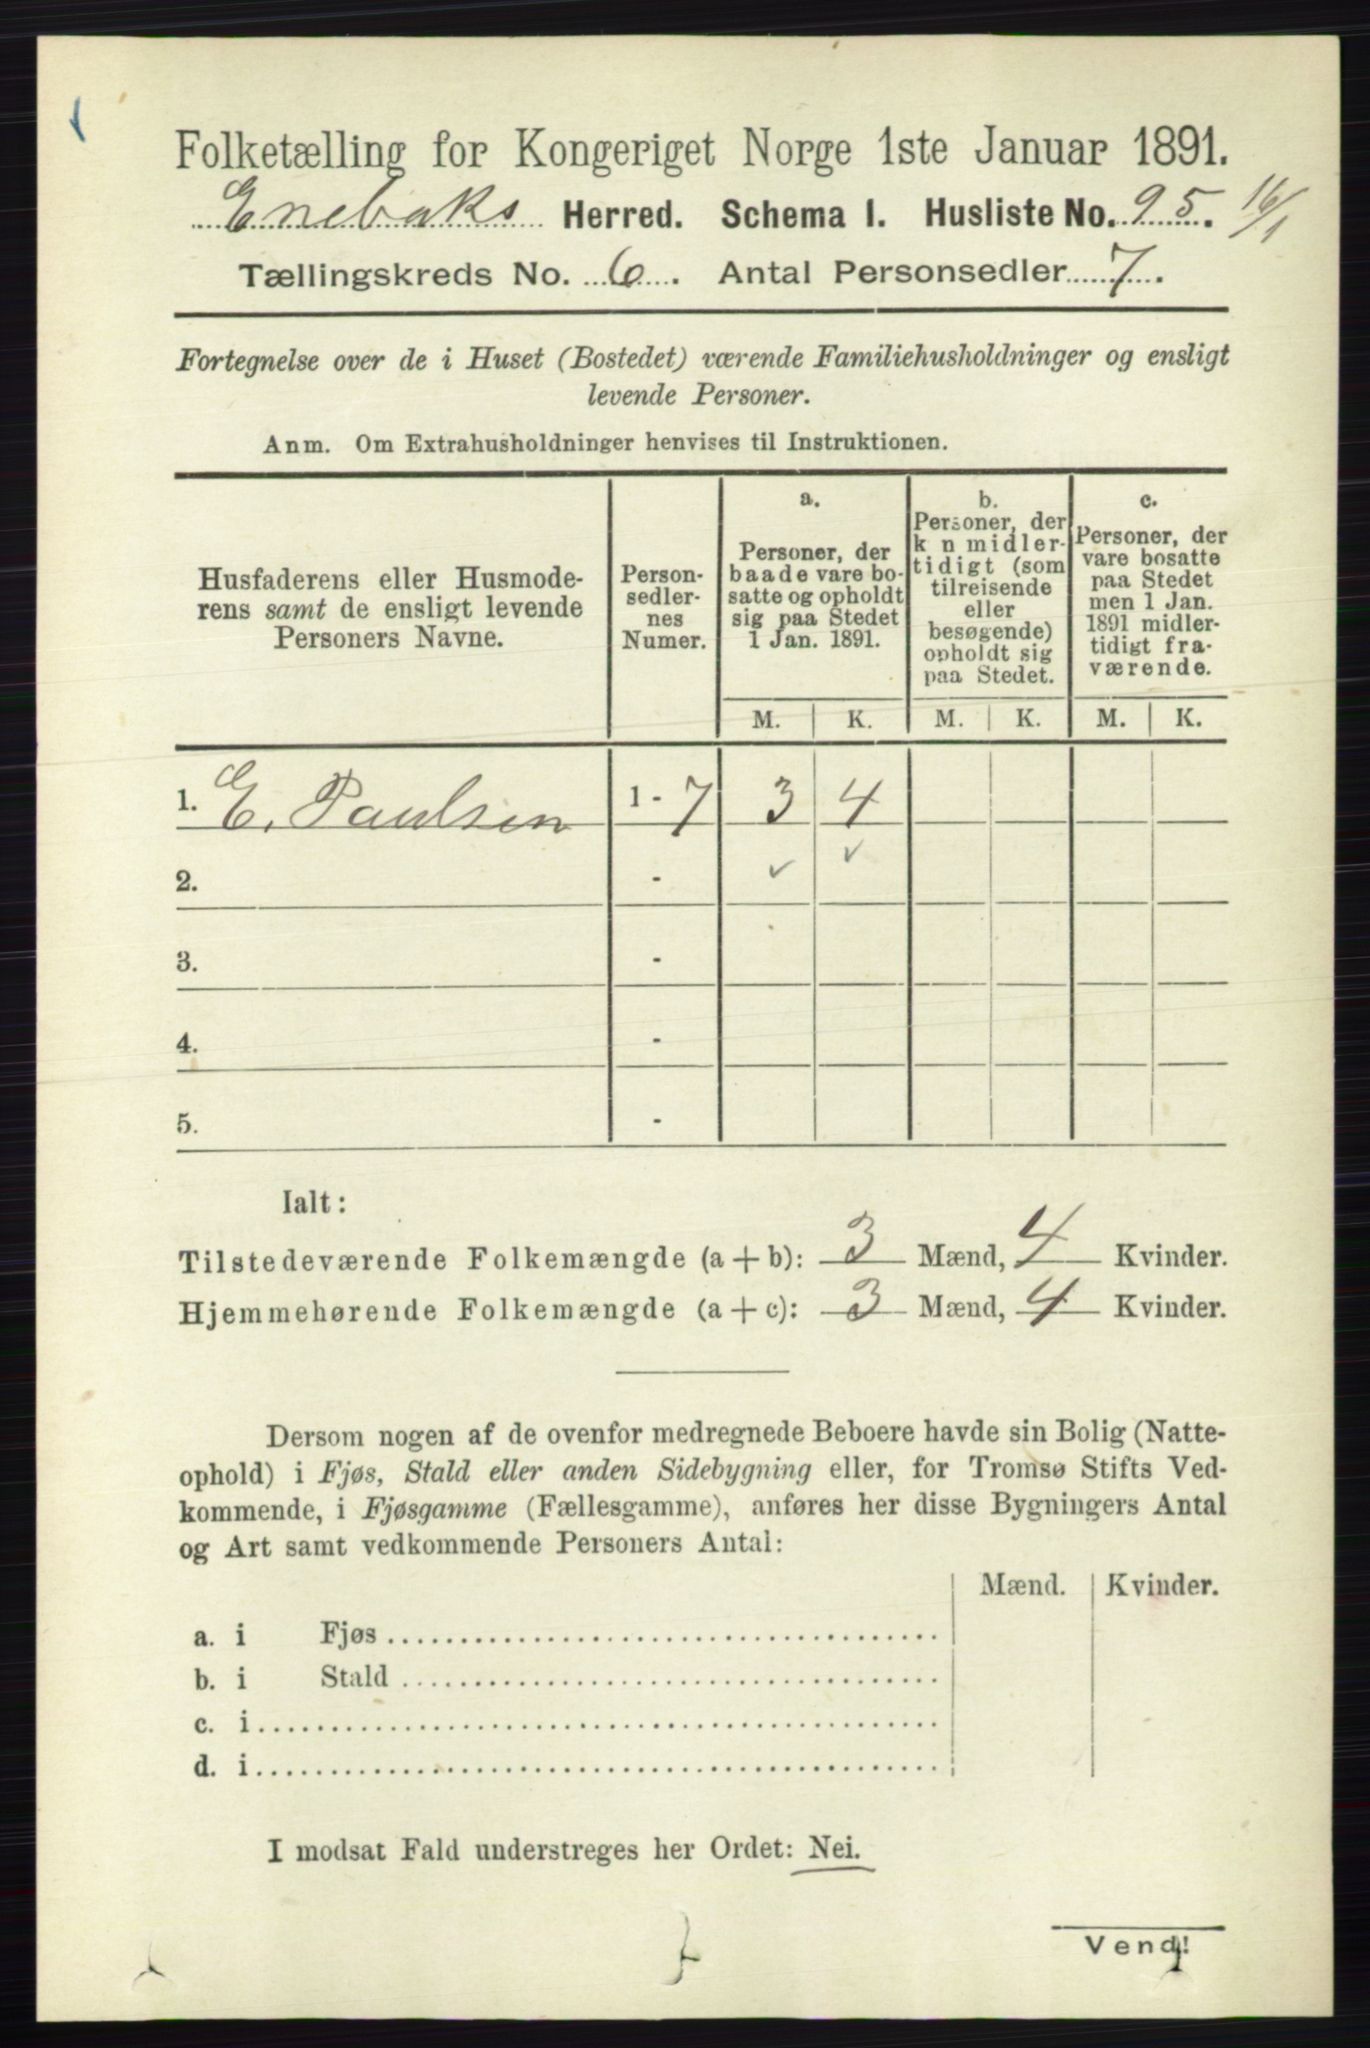 Folketælling for Kongeriget Norge 1ste Januar 1891.
Enebaks Herred. Schema I. Husliste No. 95. 16/1
Tællingskreds No. 6. Antal Personsedler 7.
Fortegnelse over de i Huset (Bostedet) værende Familiehusholdninger og ensligt
levende Personer.
Anm. Om Extrahusholdninger henvises til Instruktionen.
Husfaderens eller Husmode-
rens samt de ensligt levende
Personers Navne.
Person-
sedler-
nes
Numer.
a.
Personer, der
baade vare bo-
satte og opholdt
sig paa Stedet
1 Jan. 1891.
b.
Personer, der
k n midler-
tidigt (som
tilreisende
eller
besøgende)
opholdt sig
paa Stedet.
c.
Personer, der
vare bosatte
paa Stedet
men 1 Jan.
1891 midler-
tidigt fra-
værende.
M. K. M. K. M. K.
1. E. Paulsen 1 - 7 3 4
2. - ✓ ✓
3. -
4. -
5. -
Ialt:
Tilstedeværende Folkemængde (a + b): 3 Mænd, 4 Kvinder.
Hjemmehørende Folkemængde (a + c): 3 Mænd, 4 Kvinder.
Dersom nogen af de ovenfor medregnede Beboere havde sin Bolig (Natte-
ophold) i Fjøs, Stald eller anden Sidebygning eller, for Tromsø Stifts Ved-
kommende, i Fjøsgamme (Fællesgamme), anføres her disse Bygningers Antal
og Art samt vedkommende Personers Antal:
Mænd. Kvinder.
a. i Fjøs
b. i Stald
c. i
d. i
I modsat Fald understreges her Ordet: Nei.
Vend!